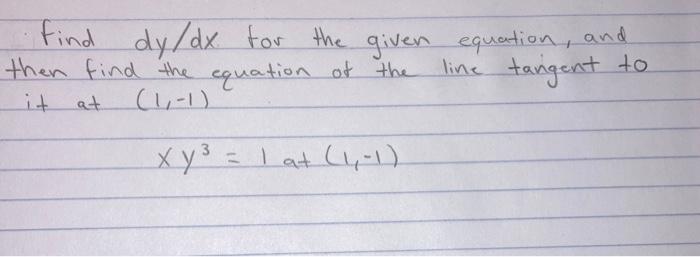 find dy/dx for the given equation, and
then find the equation of the line tangent to
it at (1,-1)
xy³ = 1 at (1,-1)